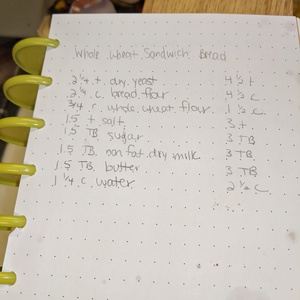 Whole Wheat Sandwich Bread
2 1/4 t. dry yeast 4 1/2 t
2 1/4 c. bread flour 4 1/2 c.
3/4 c. whole wheat flour 1 1/2 c
1.5 t salt 3 t
1.5 TB sugar 3 TB
1.5 TB. non fat dry milk 3 TB
1.5 TB butter 3 TB
1 1/4 c. water 2 1/2 c